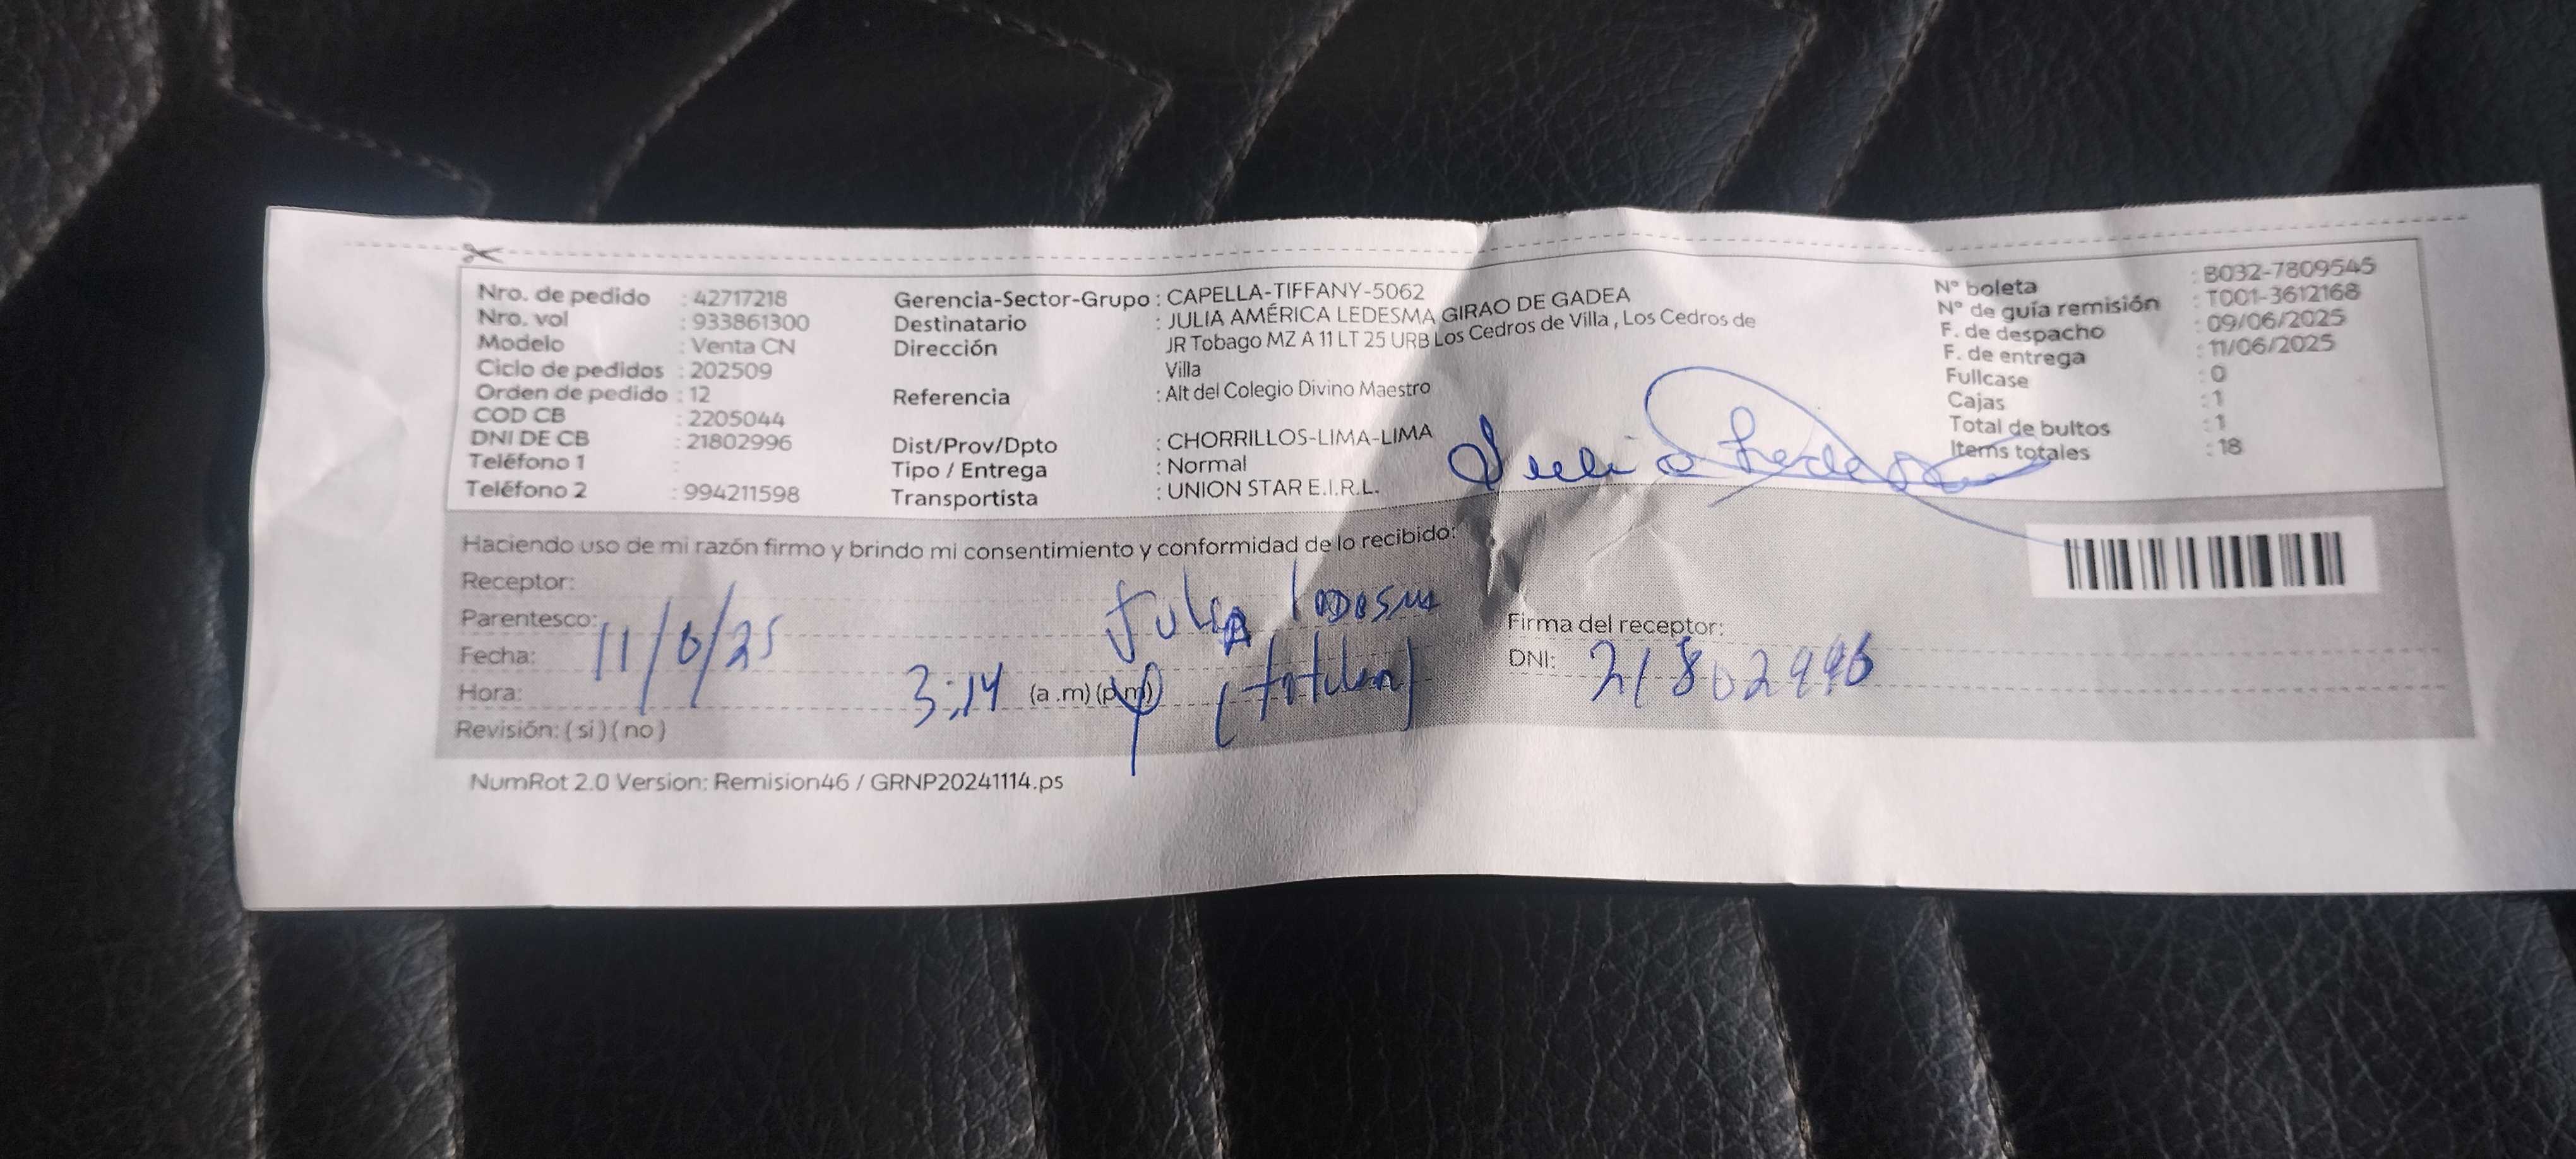 Nro. de pedido : 42717218
Nro. vol : 933861300
Modelo : Venta CN
Ciclo de pedidos : 202509
Orden de pedido : 12
COD CB : 2205044
DNI DE CB : 21802996
Teléfono 1 :
Teléfono 2 : 994211598
Gerencia-Sector-Grupo : CAPELLA-TIFFANY-5062
Destinatario : JULIA AMÉRICA LEDESMA GIRAO DE GADEA
Dirección JR Tobago MZ A 11 LT 25 URB Los Cedros de Villa , Los Cedros de
Villa
Referencia : Alt del Colegio Divino Maestro
Dist/Prov/Dpto : CHORRILLOS-LIMA-LIMA
Tipo / Entrega : Normal
Transportista : UNION STAR E.I.R.L.
N° boleta : B032-7809545
N° de guía remisión : T001-3612168
F. de despacho : 09/06/2025
F. de entrega : 11/06/2025
Fullcase : 0
Cajas : 1
Total de bultos : 1
Items totales : 18
Julia Ledesma
Haciendo uso de mi razón firmo y brindo mi consentimiento y conformidad de lo recibido:
Receptor:
Julia Ledesma
Parentesco:
Firma del receptor:
Fecha: 11/6/25
(titular)
DNI: 21802996
Hora: 3:14 (a .m) (p.m)
Revisión: ( si ) ( no )
NumRot 2.0 Version: Remision46 / GRNP20241114.ps